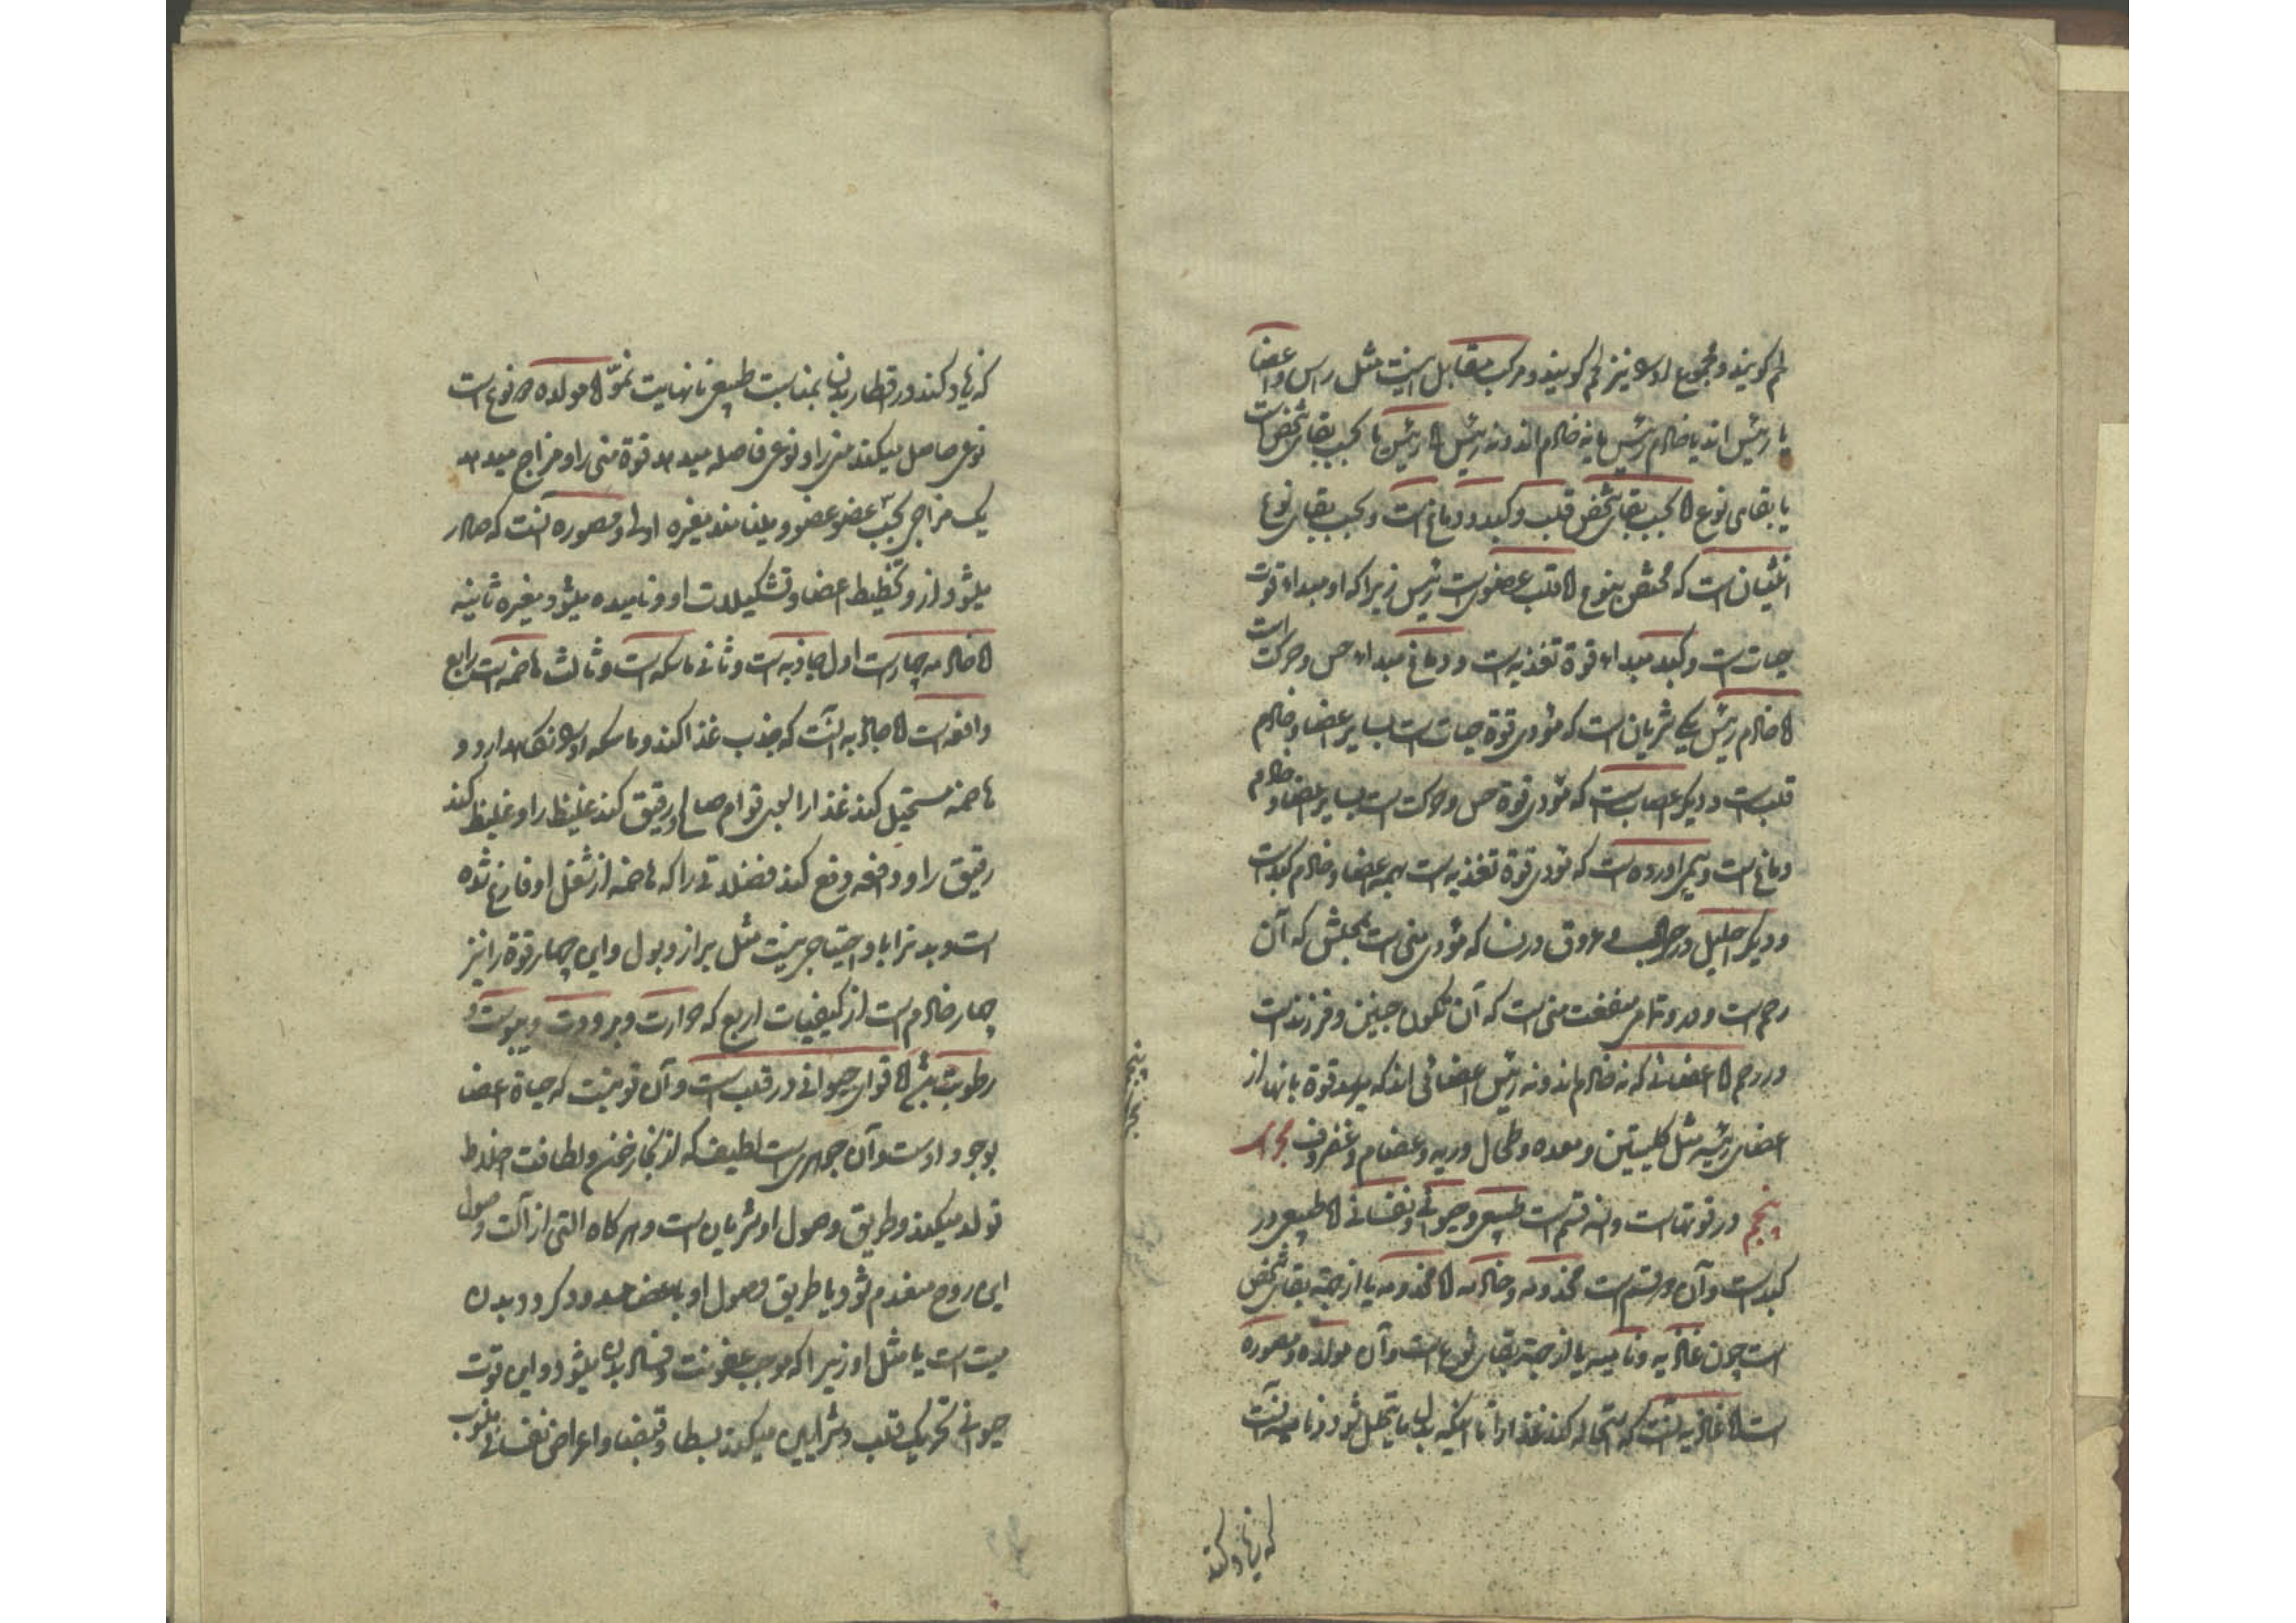 لحم گویند و مجموع او را نیز لحم گویند و مرکب مقابل اینست مثل راس و اعضا
یا رئیس اند یا خادم رئیس یا نه خادم اند و نه رئیس اما رئیس یا بحسب بقای شخص است
یا بقای نوع اما بحسب بقای شخص قلب و کبد و دماغ است و بحسب بقای نوع
انثیان است که مختص بنوع اما قلب عضوی است رئیس زیرا که او مبداء قوت
حیات است و کبد مبداء قوة تغذیه است و دماغ مبداء حس و حرکت است
اما خادم رئیس یکی شریان است که مؤدی قوة حیات است بسایر اعضا و خادم
قلب است و دیگر اعصاب است که مؤدی قوة حس و حرکت است بسایر اعضا و خادم
دماغ است و سیم اورده است که مؤدی قوة تغذیه است بهمه اعضا و خادم کبد است
و دیگر احلیل در رجال و عروق در نسا که مؤدی منی است بمحلش که آن
رحم است و در و تمامی منفعت منی است که آن تکون جنین و فرزند است
در رحم اما اعضائی که نه خادم اند و نه رئیس اعضائی اند که میرسد قوة بانها از
اعضای رئیسه مثل کلیتین و معده و طحال و ریه و عظام و غضروف بحث
پنجم در قوتهاست و سه قسم است طبیعی و حیوانی و نفسانی اما طبیعی در
کبد است و آن دو قسم است مخدومه و خادمه اما مخدومه یا از جهة بقای شخص
است چون غاذیه و نامیه یا از جهة بقای نوع است و آن مولده و مصوره
است اما غاذیه آنست که استحاله کند غذا را تا آنکه بدل ما یتحلل شود و نامیه آنست
که زیاد کند
بحث پنجم
که زیاد کند در اقطار بدن بمناسبت طبیعی تا نهایت نمو اما مولده دو نوع است
نوعی حاصل میکند منی را و نوعی فاصله میدهد قوة منی را و مزاج میدهد
یک مزاجی بحسب عضو عضو و مینامند مغیره اولی و مصوره آنست که صادر
میشود از و تخطیط اعضا و تشکیلات او و نامیده میشود مغیره ثانیه
اما خادمه چهار است اول جاذبه است و ثانی ماسکه است و ثالث هاضمه است رابع
دافعه است اما جاذبه آنست که جذب غذا کند و ماسکه او را نگاهدارد و
هاضمه مستحیل کند غذا را بسوی قوام صالح و رقیق کند غلیظ را و غلیظ کند
رقیق را و دافعه دفع کند فضلاتی را که هاضمه از شغل او فارغ شده
است و بدنرا باو احتیاجی نیست مثل براز و بول و این چهار قوة را نیز
چهار خادم است از کیفیات اربع که حرارت و برودت و یبوست و
رطوبت باشد اما قوای حیوانی در قلب است و آن قوتیست که حیاة اعضا
بوجود اوست و آن جوهری است لطیف که از بخار خون و لطافت اخلاط
تولد میکند و طریق وصول او شریان است و هر گاه التی از آلت وصول
این روح منعدم شود یا طریق وصول او باعضا مسدود گردد بدن
میت است یا مثل او زیرا که موجب عفونت و فساد بدن میشود و این قوت
حیوانی تحریک قلب و شرایین میکند بسطا و قبضا و اعراض نفسانی منسوب